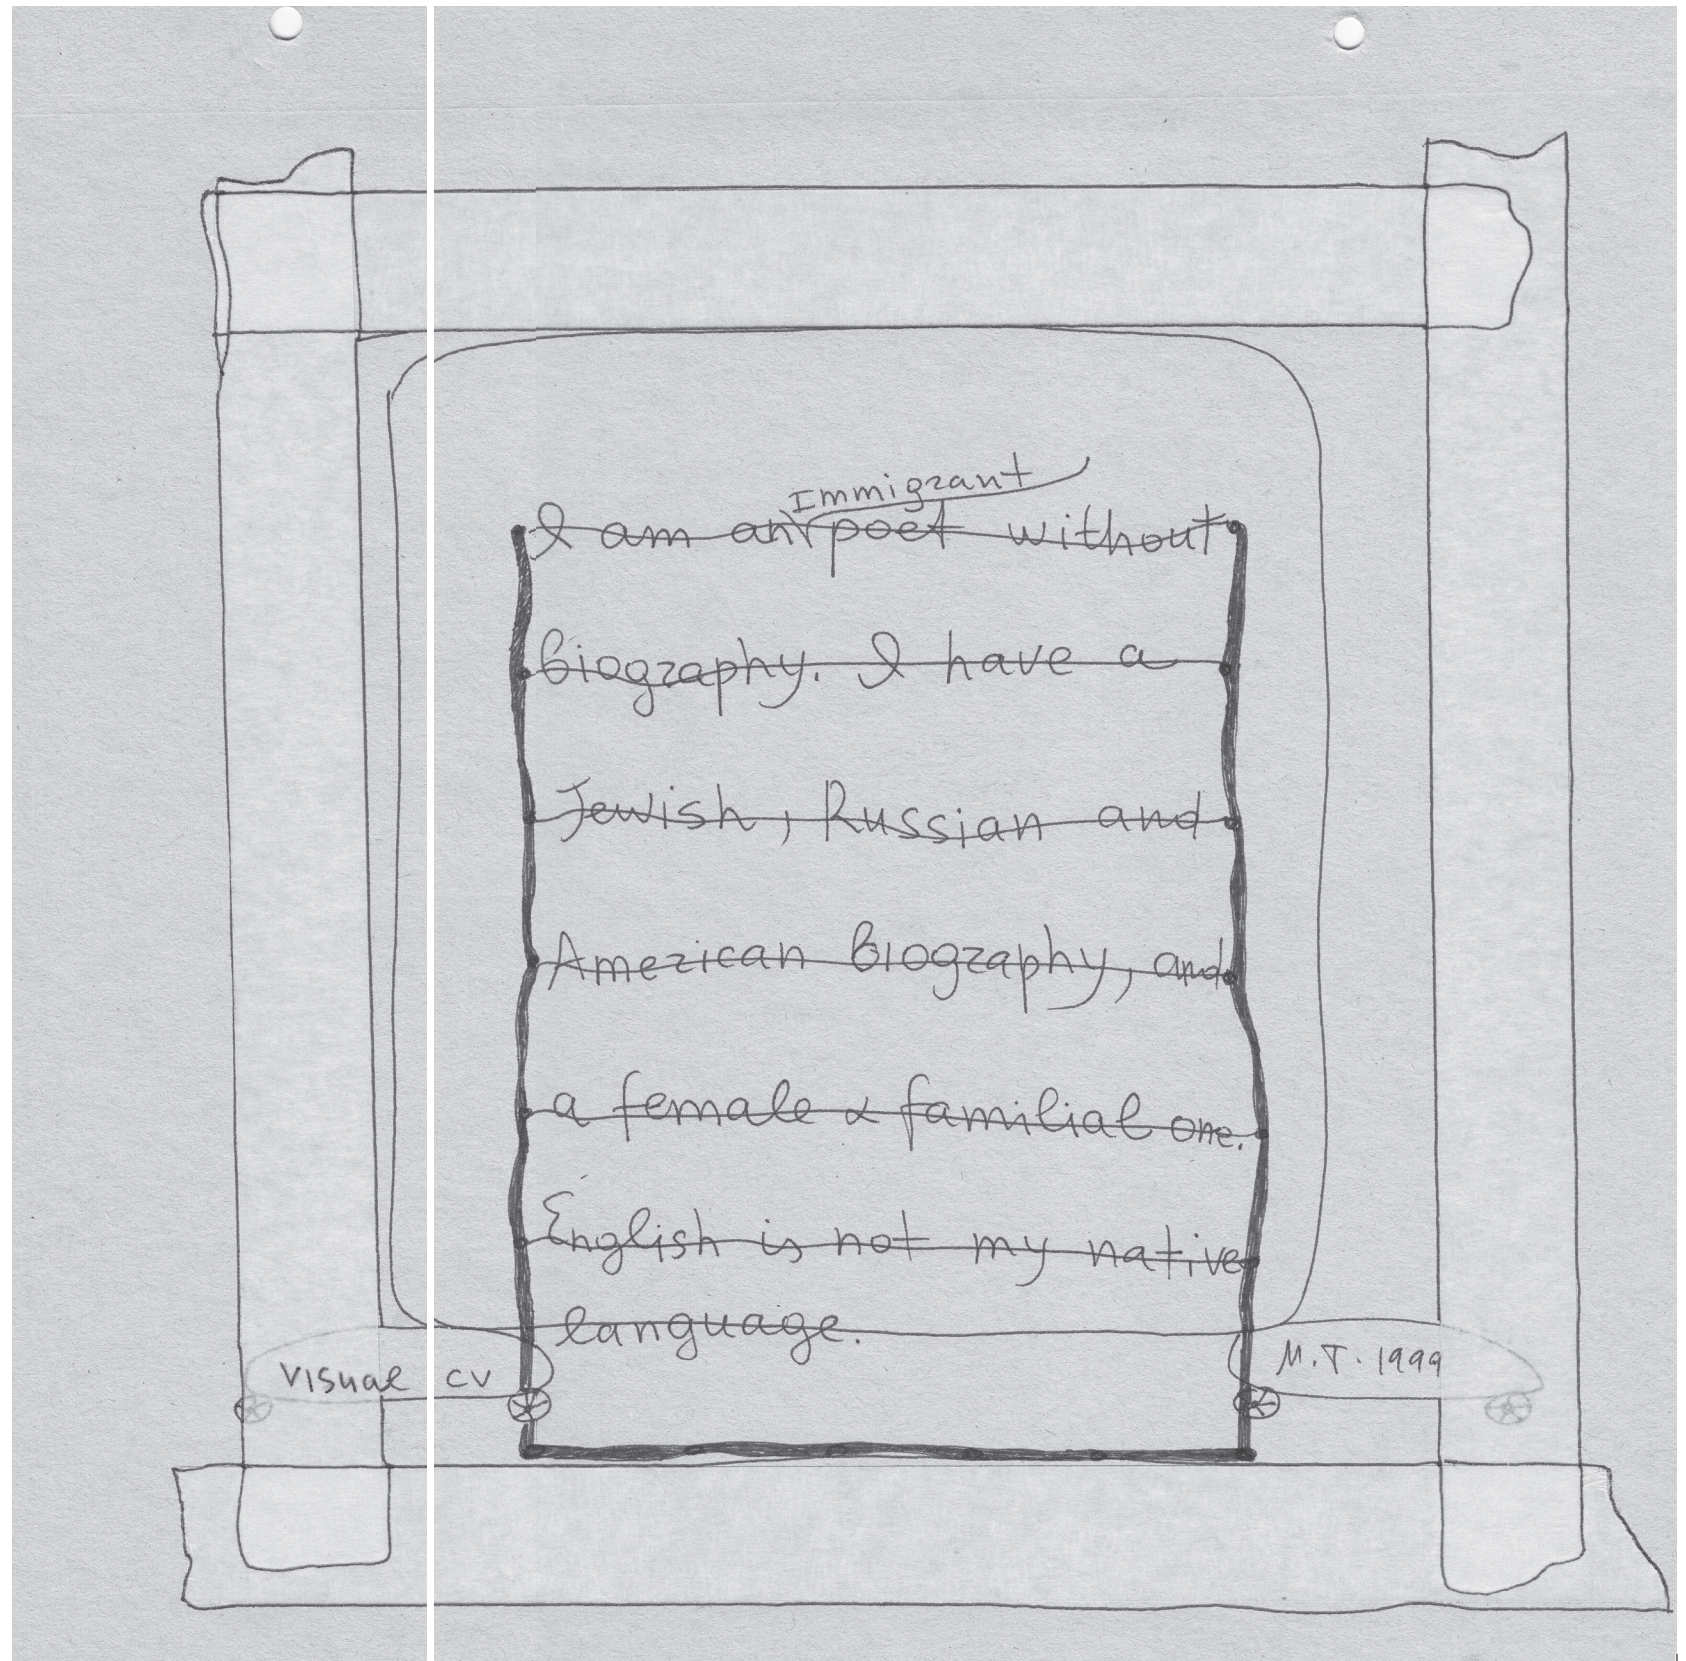 Immigrant
I am an poet without
biography. I have a
Jewish, Russian and
American biography, and
a female & familial one.
English is not my native
language.
Visual CV
M.T. 1999